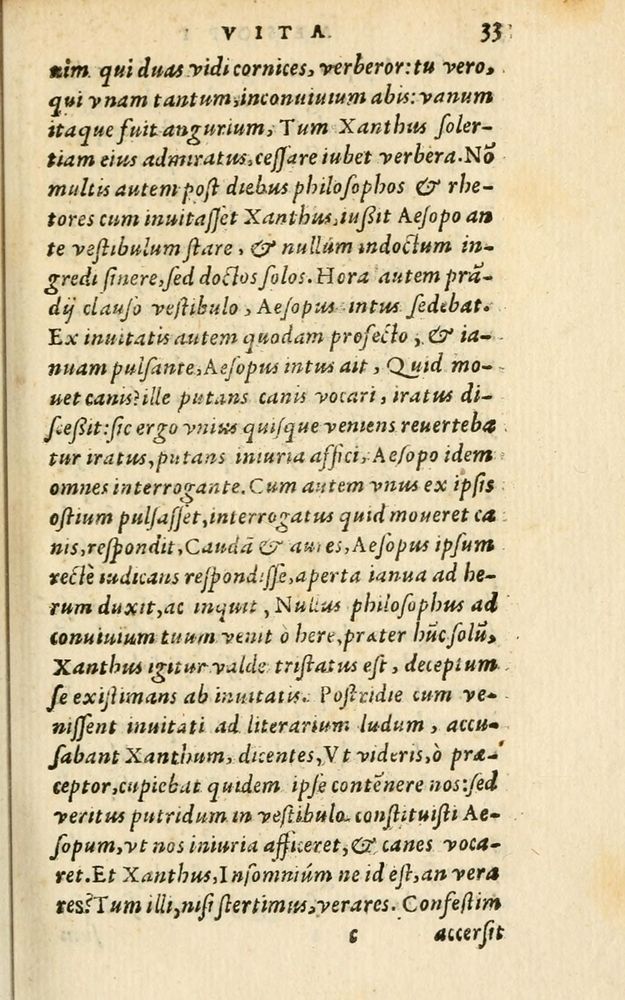 VITA 33
nim qui duas vidi cornices, verberor: tu vero,
qui vnam tantum, inconuiuium abis: vanum
itaque fuit angurium, Tum Xanthus soler-
tiam eius admiratus, cessare iubet verbera. Nō
multis autem post diebus philosophos & rhe-
tores cum inuitasset Xanthus, iußit Aesopo an
te vestibulum stare, & nullum indoctum in-
gredi sinere, sed doctos solos. Hora autem prā-
dij clauso vestibulo, Aesopus intus sedebat.
Ex inuitatis autem quodam profecto, & ia-
nuam pulsante, Aesopus intus ait, Quid mo-
uet canis? ille putans canis vocari, iratus di-
sceßit: sic ergo vnius quisque veniens reuerteba
tur iratus, putans iniuria affici, Aesopo idem
omnes interrogante. Cum autem vnus ex ipsis
ostium pulsasset, interrogatus quid moueret ca
nis, respondit, Caudā & aures, Aesopus ipsum
rectè iudicans respondisse, aperta ianua ad he-
rum duxit, ac inquit, Nullus philosophus ad
conuiuium tuum venit ò here, præter hūc solū,
Xanthus igitur valde tristatus est, deceptum
se existimans ab inuitatis. Postridie cum ve-
nissent inuitati ad literarium ludum, accu-
sabant Xanthum, dicentes, Vt videris, ò præ-
ceptor, cupiebat quidem ipse contēnere nos: sed
veritus putridum in vestibulo constituisti Ae-
sopum, vt nos iniuria afficeret, & canes voca-
ret. Et Xanthus, Insomniúm ne id est, an vera
res? Tum illi, nisi stertimus, verares. Confestim
c accersit